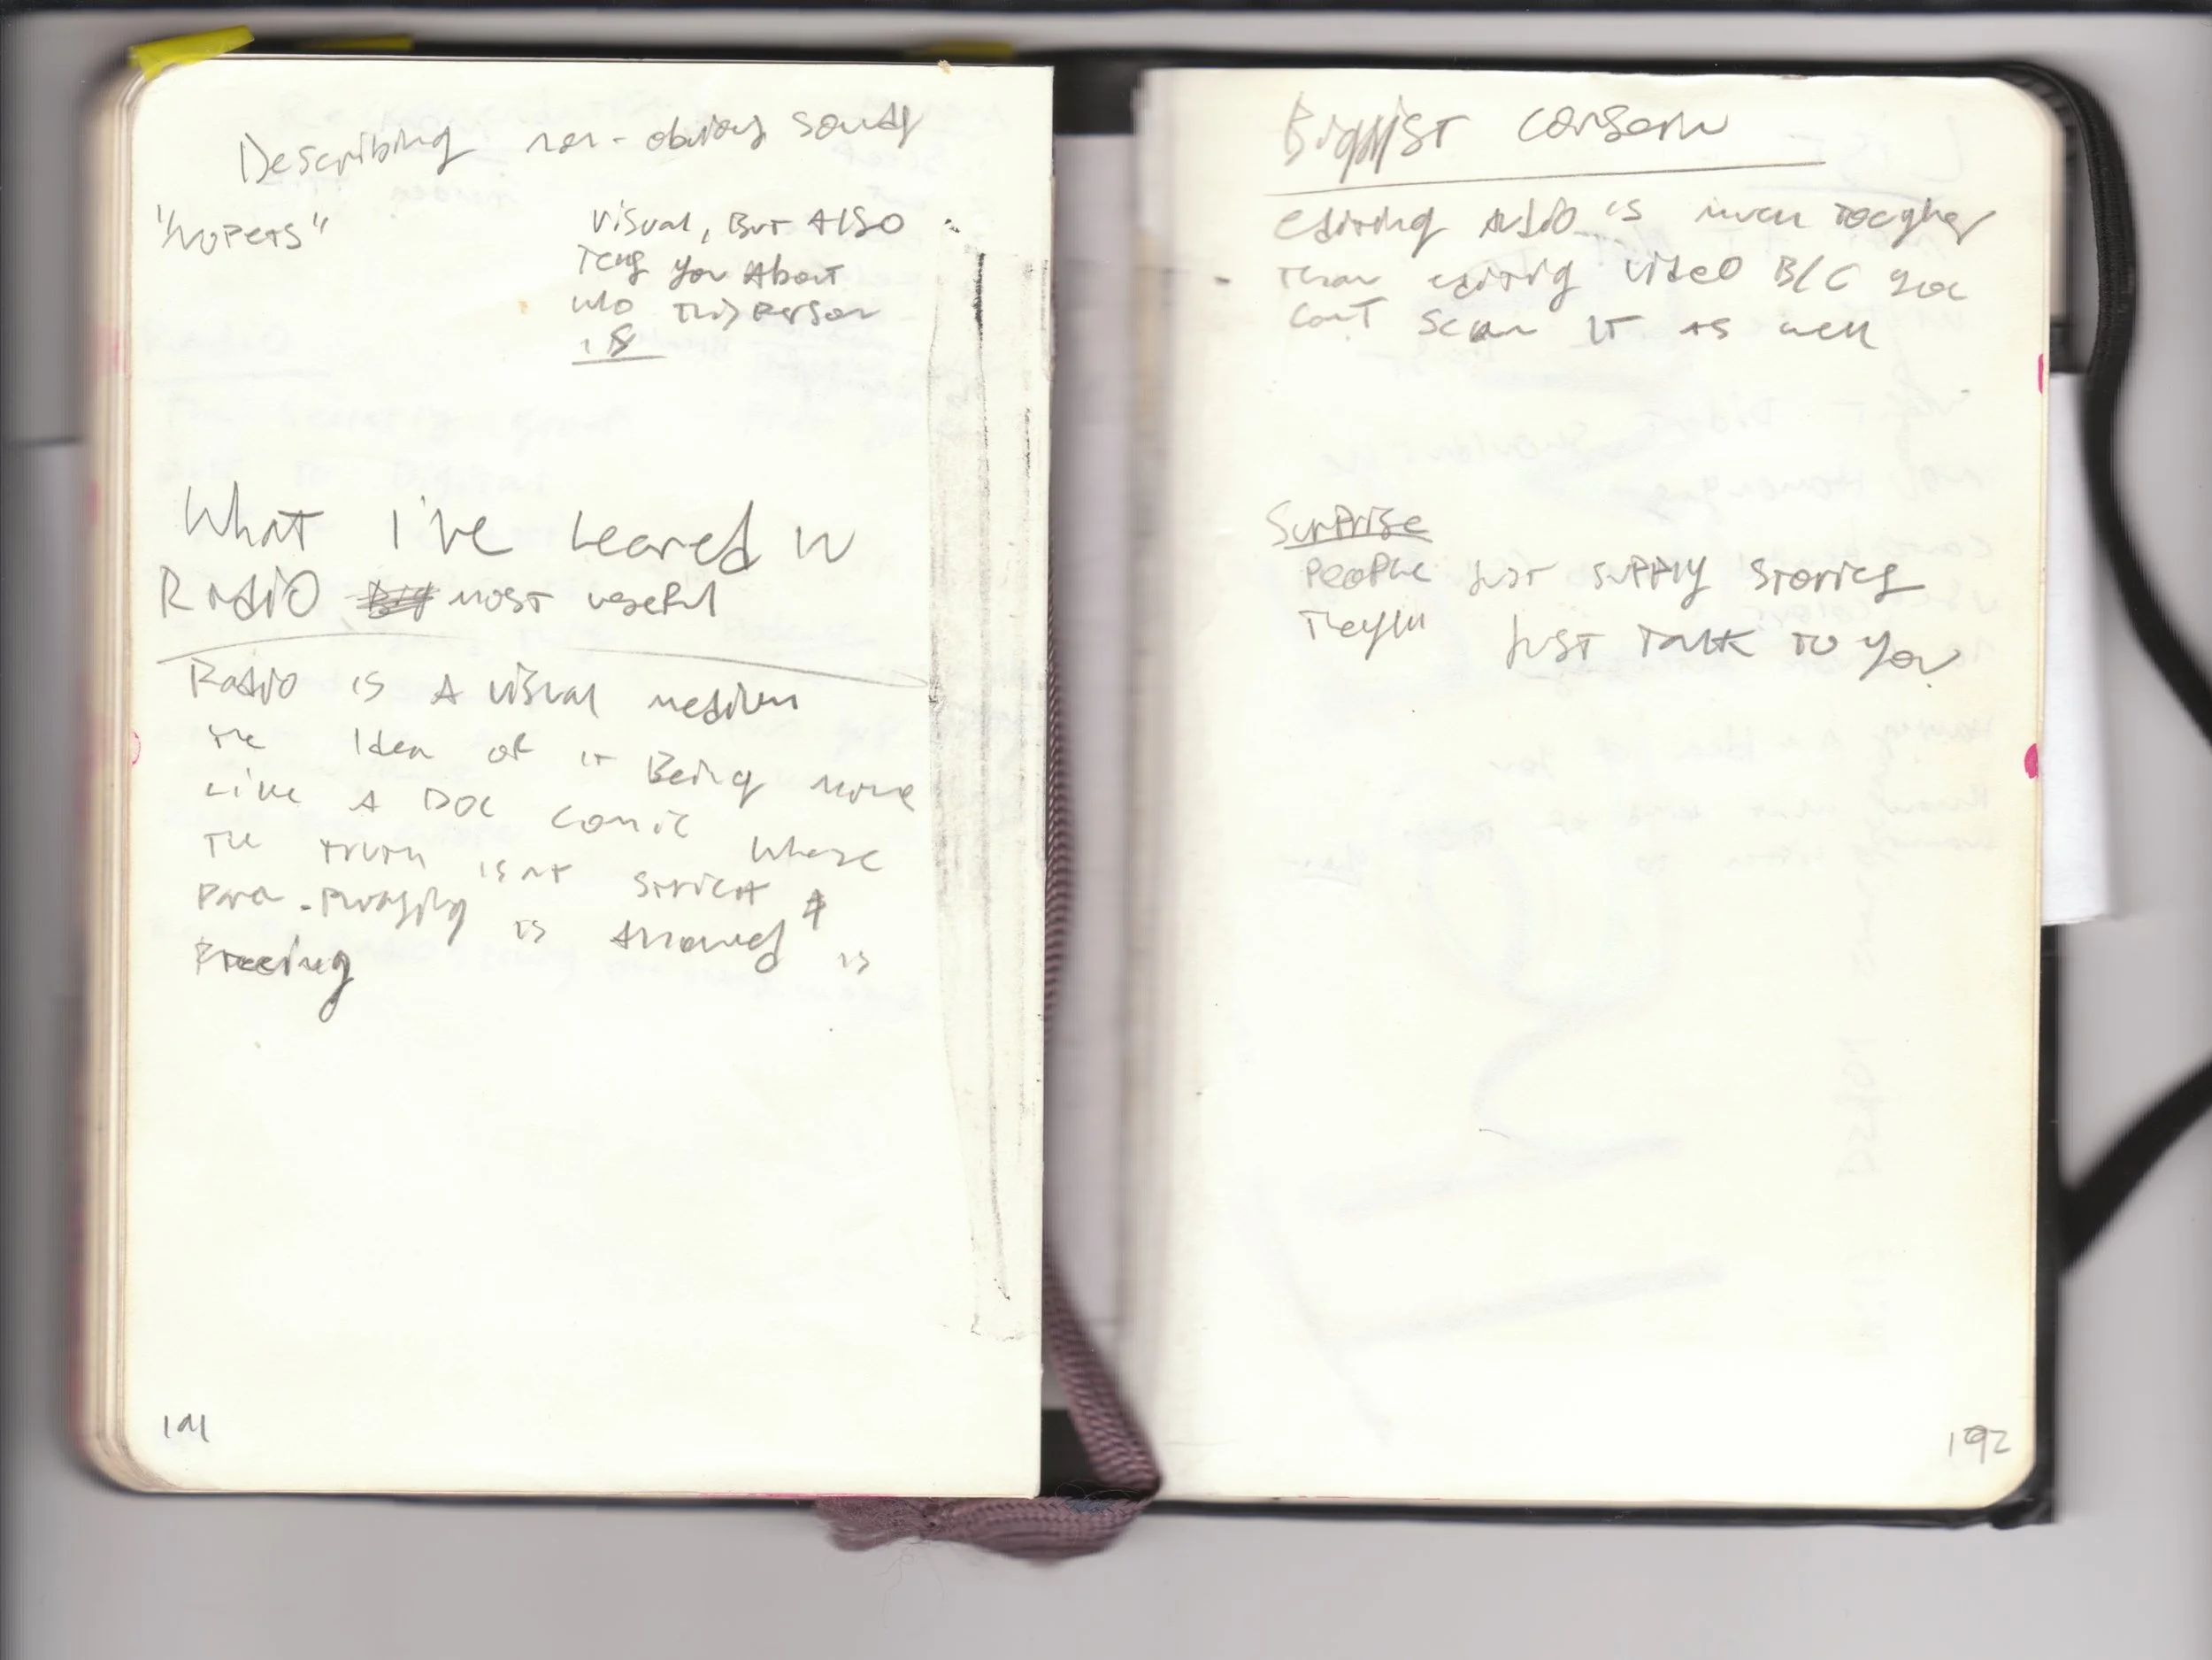 Describing non-obvious sounds
"No Pets"
Visual, But Also
Tells you About
who this Person
is
What I've Learned in
Radio most useful
Radio is A visual medium
The Idea of it Being more
Like A Doc comic where
The truth isnt strict &
Para-Phrasing is Allowed is
Freeing
191
Biggist consern
Editing Audio is much tougher
Than editing video B/C you
Can't scan it as well
Surprise
People just supply stories
They'll just Talk to you
192